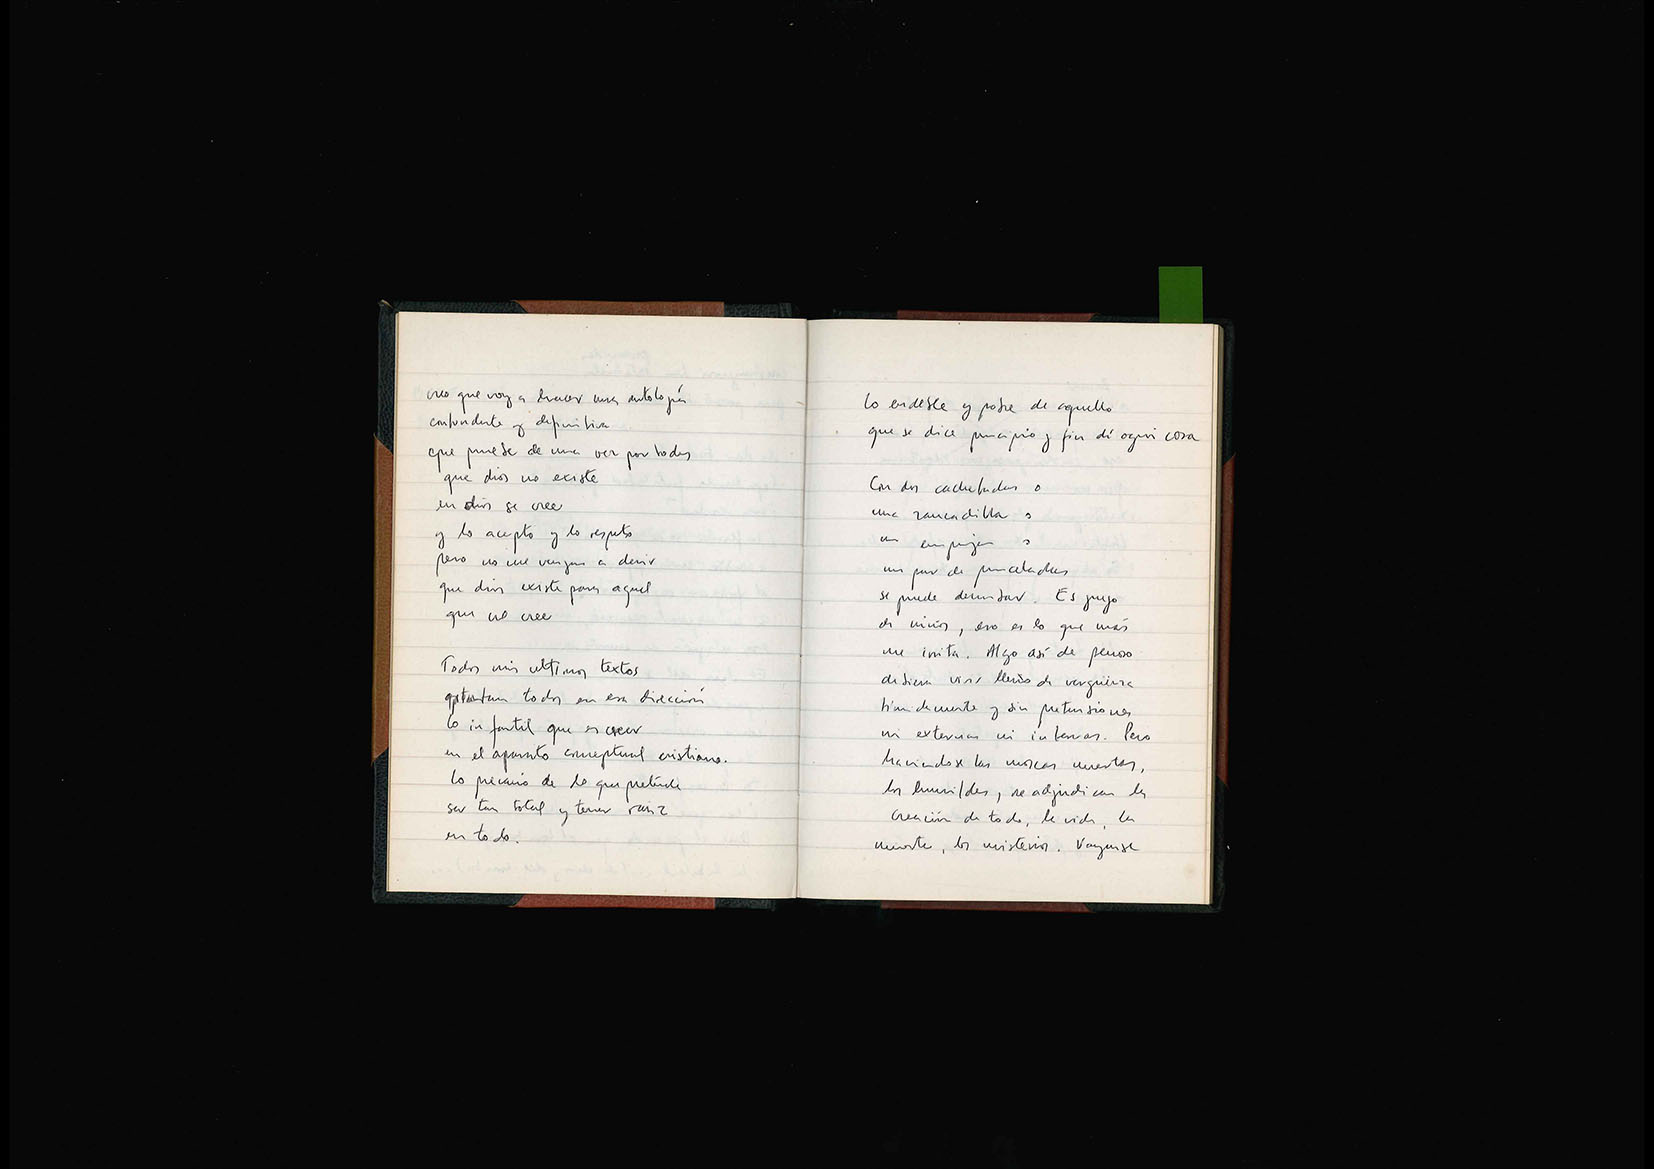 creo que voy a hacer una antología
contundente y definitiva
que pruebe de una vez por todas
que dios no existe
en dios se cree
y lo acepto y lo respeto
pero no me vengan a decir
que dios existe para aquel
que no cree
Todos mis ultimos textos
apuntan todos en esa dirección
lo infantil que es creer
en el aparato conceptual cristiano.
lo precario de lo que pretende
ser tan total y tener raiz
en todo.
lo endeble y pobre de aquello
que se dice principio y fin di ogni cosa
Con dos cachetadas o
una zancadilla o
un empujon o
un par de pinceladas
se puede derrumbar. Es juego
de niños, eso es lo que más
me irrita. Algo así de penoso
debiera vivir lleno de vergüenza
timidamente y sin pretensiones
ni externas ni internas. Pero
haciendose las moscas muertas,
los humildes, se adjudican la
creación de todo, la vida, la
muerte, los misterios. Vayanse